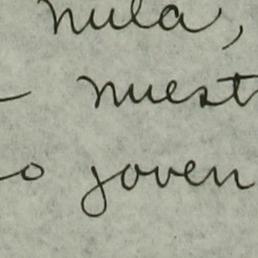 nula,
- nuest
o joven